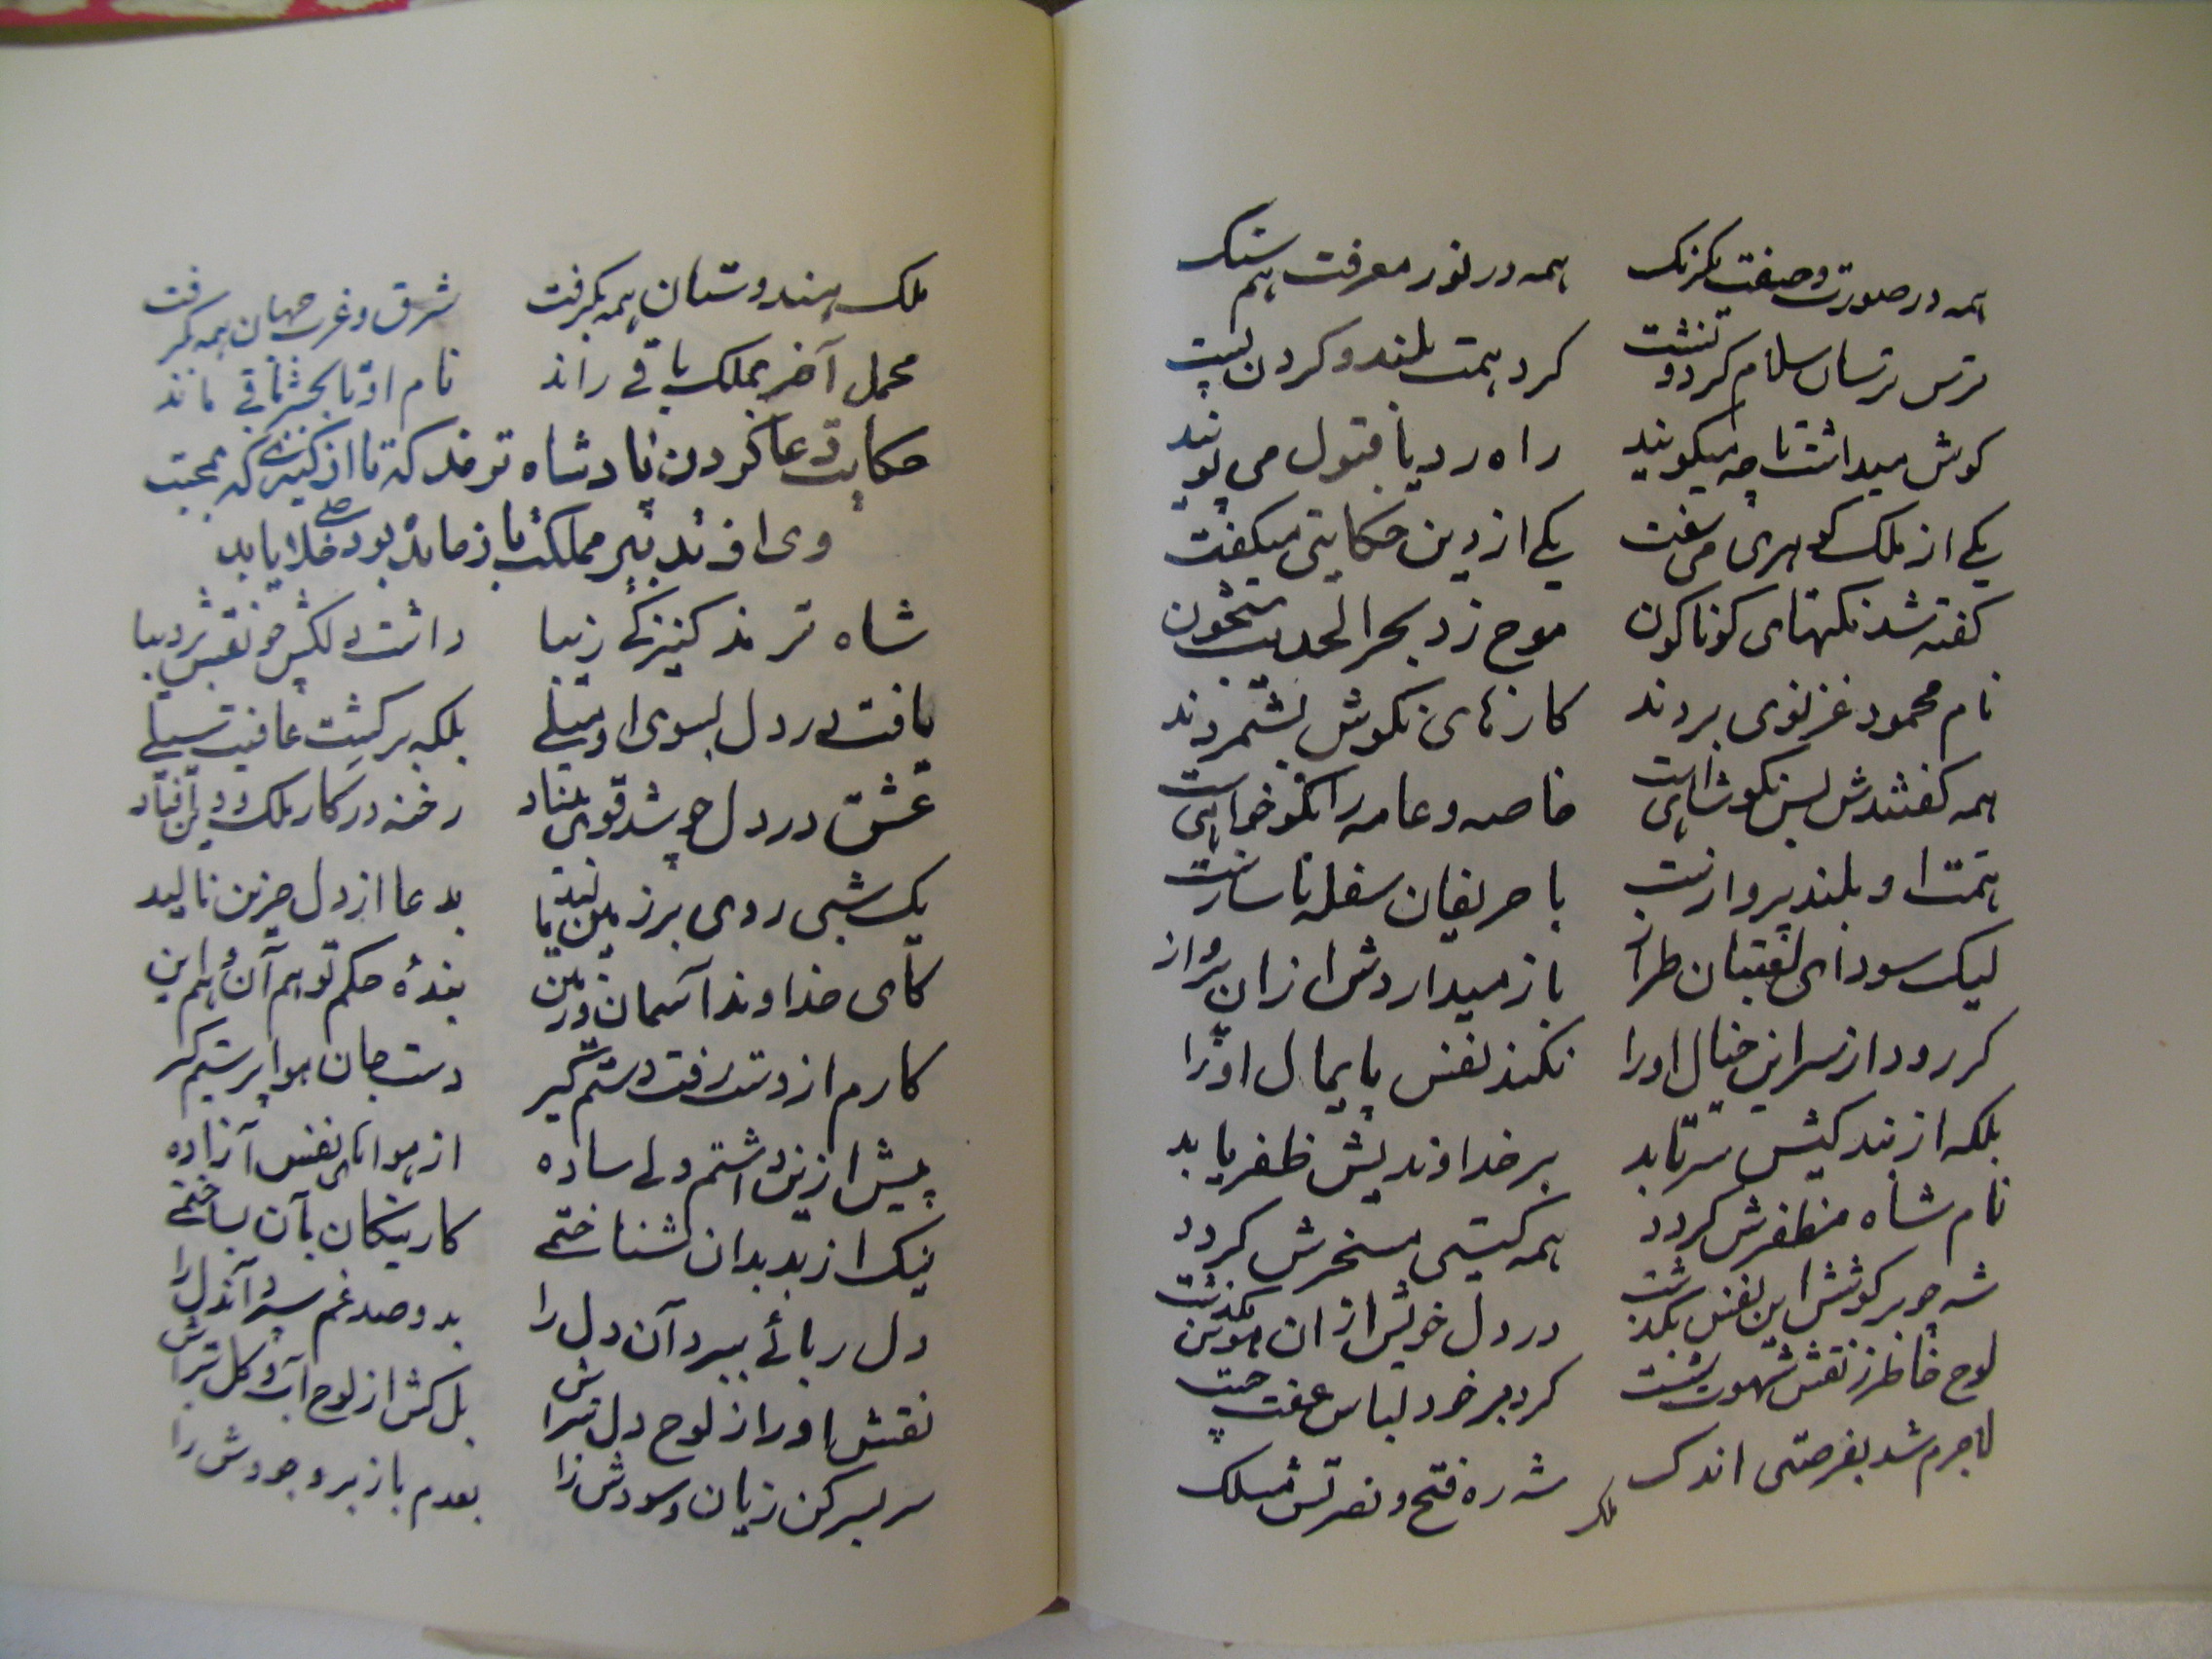 همه در صورت و صفت یکرنک همه در نور معرفت هم سنک
ترس ترسان سلام کرد و نشست کرد همت بلند و کردن پست
کوش میداشت تا چه میکویند راه رد یا قبول می پویند
یکی از ملک کوهری می سفت یکی از دین حکایتی میکفت
کفته شد نکتهای کوناکون موج زد بحر الحدیث شجون
نام محمود غزنوی بردند کارهای نکوش بشمردند
همه کفتندش بس نکو شاهی است خاصه و عامه را نکو خواهی است
همت او بلند پروازست با حریفان سفله ناسازست
لیک سودای لعبتان طراز باز میداردش ازان پرواز
کر رود از سر این خیال او را نکند نفس پایمال او را
بلکه از بندکیش سر تابد بر خداوندیش ظفر یابد
نام شاه مظفرش کردد همه کیتی مسخرش کردد
شه چو بر کوشش این نفس بکذشت در دل خویش از ان هوس بکذشت
لوح خاطر ز نقش شهوت شست کرد بر خود لباس عفت چست
لاجرم شد بفرصتی اندک شه ره فتح و نصرتش مسلک
ملک
ملک هندوستان همه بکرفت شرق و غرب جهان همه بکرفت
محمل آخر بملک باقی راند نام او تا بحشر باقی ماند
حکایت دعا کردن پادشاه ترمذ که تا از کنیزکی که بمحبت
وی از تدبیر مملکت باز مانده بود خلاص یابد
شاه ترمذ کنیزکی زیبا داشت دلکش چو نقش بر دیبا
یافت در دل بسوی او میلی بلکه بر کشت عافیت سیلی
عشق در دل چو شد قوی بنیاد رخنه در کار ملک و دین افتاد
یک شبی روی بر زمین مالید بدعا از دل حزین نالید
کای خداوند آسمان و زمین بندۀ حکم تو هم آن و هم این
کارم از دست رفت دستم کیر دست جان هوا پرستم کیر
پیش ازین داشتم دلی ساده از هواهای نفس آزاده
نیک از بد بدان شناختمی کار نیکان بآن بساختمی
دل ربائی ببرد آن دل را بدو صد غم سپرد آندل را
نقش او را ز لوح دل بتراش بل کش از لوح آب و کل بتراش
سر بسر کن زیان و سودش را بعدم باز بر وجودش را